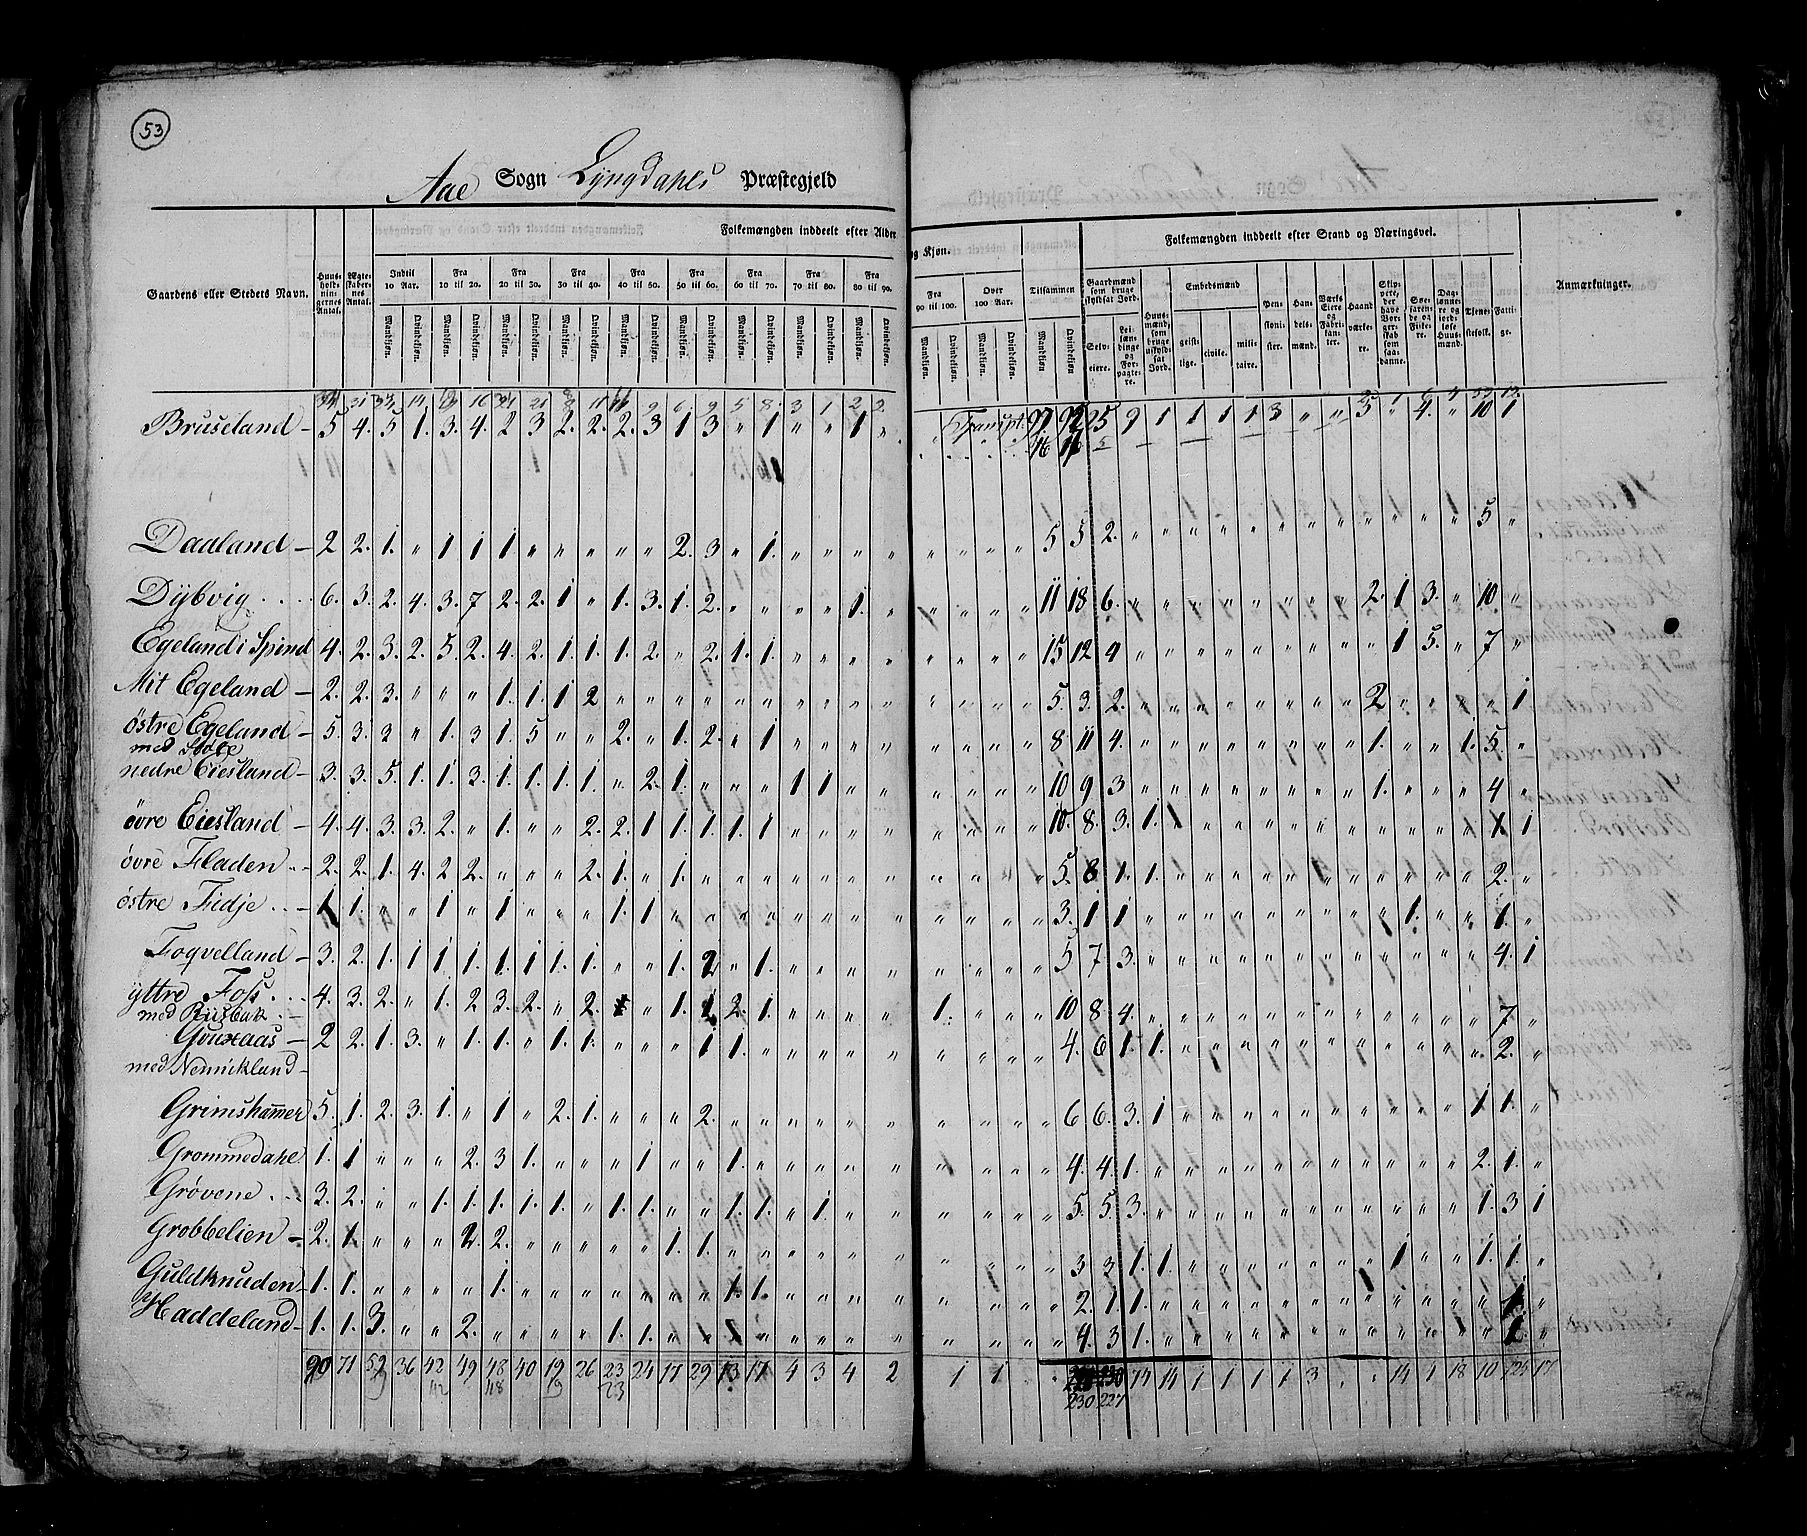 53
Aae Sogn Lyngdahls Præstegjeld
Folkemængden inddeelt efter Alder og Kjøn.
Folkemængden inddeelt efter Stand og Næringsvei.
Gaardens eller Stedets Navn.
Huusholdningernes Antal.
Ægteskabernes Antal.
Indtil 10 Aar. Fra 10 til 20. Fra 20 til 30. Fra 30 til 40. Fra 40 til 50. Fra 50 til 60. Fra 60 til 70. Fra 70 til 80. Fra 80 til 90. Fra 90 til 100. Over 100 Aar. Tilsammen
Mandkjøn. Qvindekjøn.
Gaardmænd som bruge skyldsat Jord. Selveiere. Leilændinge og Forpagtere.
Huusmænd, som bruge uskyldsat Jord.
Embedsmænd geistlige. civile. militaire.
Pensionister. Handelsmænd. Værks Eiere og Fabrikanter. Haandværkere. Skippere, der have Borgerskab som saadanne. Søefarende og Fiskere. Daglønnere og jordløse Huusmænd. Tjenestefolk. Fattige.
Anmærkninger.
Bruseland - 5 4. 5 1. 3. 4. 2 3 2. 2. 2. 3 1 3 " 1 " " 1 " Transpt. 97 92 35 9 1 1 1 1 3 " " 5 " 4. " 10 1
16 17
Daaland - 2 2. 1. " 1 1 1 " " " " " 2. 3 " 1. " " " " " " " " 5 5 2. " " " " " " " " " " " " 5 "
Dybvig . . . . 6. 3. 2. 4. 3. 7 2. 2. 1 " 1. 3. 1. 2. " " " " 1. " " " " " 11 18 6. " " " " " " " " 2. 1 3. " 10. "
Egeland i Spind 4. 2. 3. 2. 5. 2. 4. 2. 1. 1. 1. 2. " 2. 1. 1. " " " " " " " " 15 12 4 " " " " " " " " " 1 5. " 7 "
Mit Egeland - 2. 2. 3. " " " 1. 1. 1 2 " " " " " " " " " " " " " " 5. 3. 2. " " " " " " " " 2 " " " " 1
östre Egeland - 5. 3. 2 " 1. 3 1. 5 " " 2. " 1. 2. " 1 " " " " " " " " 8 11 4. " " " " " " " " 1. " " 1. 5. "
med
nedre Eiesland - 3. 3. 5. 1. 1. 3. 1. 1. 1. 1. " 2. 1. " " " 1 1. " " " " " " 10 9 3 " " " " " " " " 1. " " " 4 "
övre Eiesland - 4. 4. 3. 3. 2. " 1. " " 2. 2. 1 1 1. 1. 1 " " " " " " " " 10. 8. 3. 1. 1 " " " " " " " " " " 1. 1
övre Fladen . . 2. 2. 1. 4. 2. 2. " " " 2. 1. " 1. " " " " " " " " " " " 5. 8 1. 1. " " " " " " " " " " " 2. "
östre Fidje . . - 1 1. " " 1 " 1 " " " 1. 1 " " " " " " " " " " " " 3. 1 1 " " " " " " " " " " 1. " 1. "
Foqvelland - 3. 2. 1. 1 1 1. 1. 1. 1. 1. " " 1. 2 " 1. " " " " " " " " 5 7 3. " " " " " " " " " " " " 4. 1
yttre Foss . . . 4. 3. 2. " 1. 2 3. 2. " 2. " " 1. 1 2. 1. " " " " 1. " " " 10 8. 4. " " " " " " " " " " " " 7 "
med
2 2. 1. 3. " 1. 1. " 1. 1. " " " 1 1. " " " " " " " " " 4. 6 1. 1. " " " " " " " " " " " 2. "
med Nennikland -
Grimshammer 5. 1. 2. 3. 1. " 1 " 2. 1. " " " 2. " " " " " " " " " " 6 6. 3. 1 " " " " " " " " " " 1 1. "
Grommedahl 1. 1 " " " 2. 3 1. " " " 1 " " 1. " " " " " " " " " 4. 4. 1. " " " " " " " " " " " 2. 1. "
Grövene . . . 3. 2. " " 1. 1. 1. 1. 1. " 1. 1. " " 1. 1. " 1. " " " " " " 5. 5 3. " " " " " " " " " " " 1. 3 1
Grobbelien - 2. 1. " " " 2. 2. " " " " " 1. 1. " " " " " " " " " " 3 3 1. 1. " " " " " " " " 1 " 1. 1. "
Guldknuden - 1. 1. " " " " 1. " " " " " " " 1. 1. " " " " " " " " 2. 1. 1. " " " " " " " " " " " " 1. "
Haddeland - 1. 1. 3. " " 2. " " " " 1. 1. " 1 1 " " " " " " " " " 4. 3 1. " " " " " " " " " " " " 1. "
90 71 52 36 42 49 48 40 19 26 23 24 17 29 13 17 4 3 4 2 1 1 74 14 1 1 1 1 3 " " 14 4 18 10 125 17
42 48 19 23 230 227